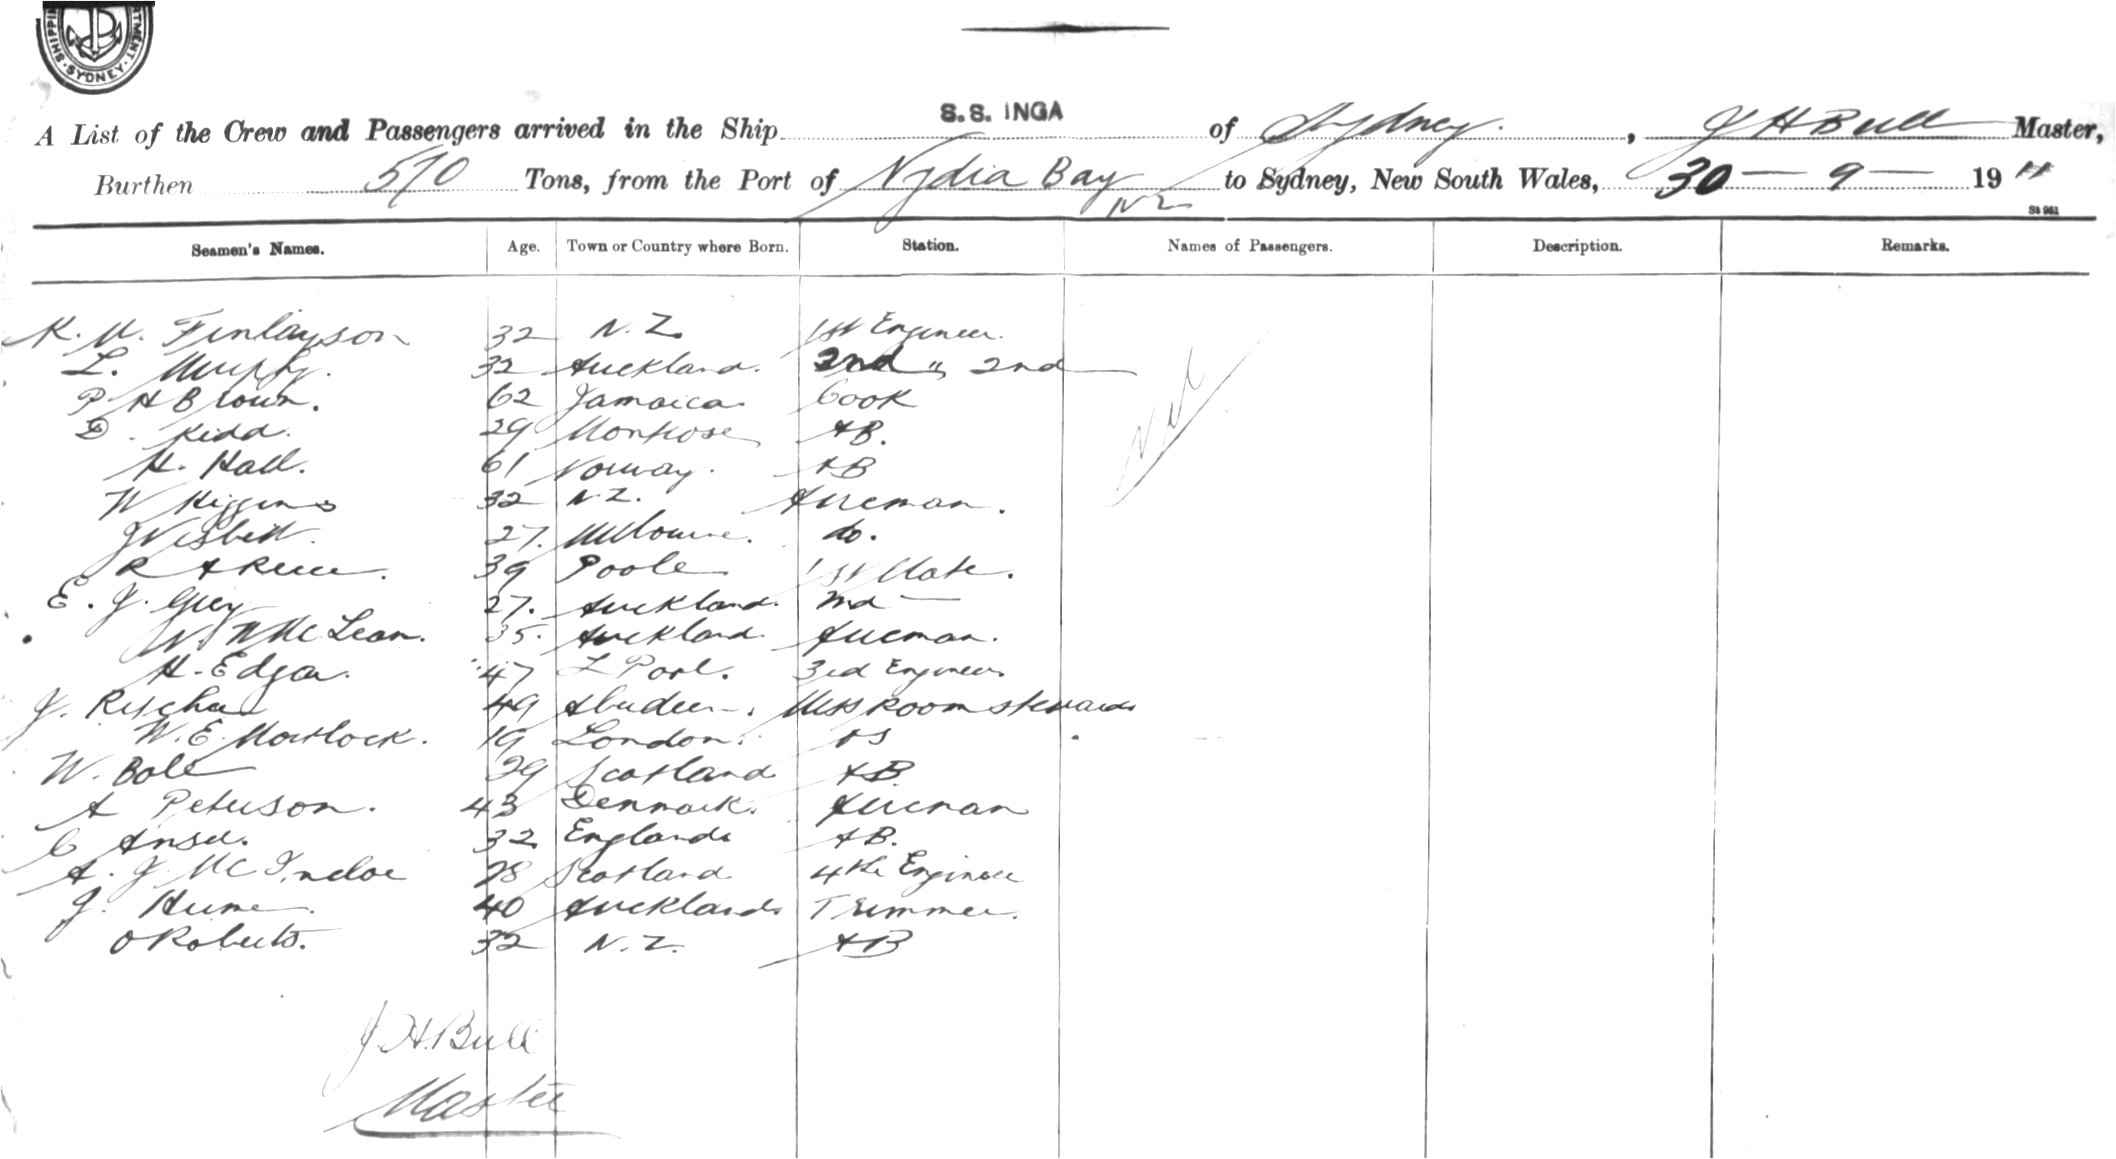 SHIPPING DEPARTMENT · SYDNEY ·
A List of the Crew and Passengers arrived in the Ship S.S. INGA of Sydney, J H Bull Master,
Burthen 570 Tons, from the Port of Nydia Bay NZ to Sydney, New South Wales, 30 - 9 - 19 11
St 961
Seamen's Names. Age. Town or Country where Born. Station. Names of Passengers. Description. Remarks.
K. M. Finlayson 32 N.Z. 1st Engineer
L. Murphy. 32 Auckland. 2nd " 2nd Nil
P H Brown. 62 Jamaica Cook
D. Kidd. 29 Montrose AB.
H. Hall. 61 Norway. AB
W Higgins 32 N.Z. Fireman.
J Nisbett. 27. Melbourne. do.
39 Poole 1st Mate.
E. J. Grey 27. Auckland. 2nd —
N. McLean. 35. Auckland. Fireman.
H. Edgar. 47 L Pool. 3rd Engineer
J. 49 Aberdeen. Mess Room Steward
W. E. Mortlock. 19 London. OS
W. Bale 29 Scotland AB
A Peterson. 43 Denmark. Fireman
C Ansel. 32 England AB.
A. J. McIneloe 28 Scotland 4th Engineer
J. Hume. 40 Auckland Trimmer.
O Roberts. 32 N.Z. AB
J. H. Bull
Master